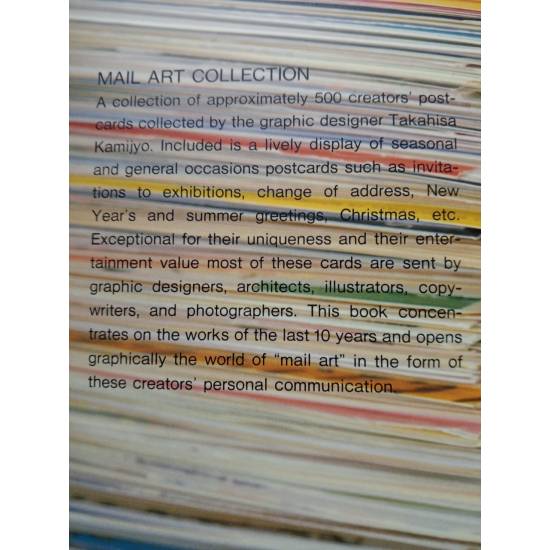 MAIL ART COLLECTION
A collection of approximately 500 creators' post-
cards collected by the graphic designer Takahisa
Kamijyo. Included is a lively display of seasonal
and general occasions postcards such as invita-
tions to exhibitions, change of address, New
Year's and summer greetings, Christmas, etc.
Exceptional for their uniqueness and their enter-
tainment value most of these cards are sent by
graphic designers, architects, illustrators, copy-
writers, and photographers. This book concen-
trates on the works of the last 10 years and opens
graphically the world of "mail art" in the form of
these creators' personal communication.